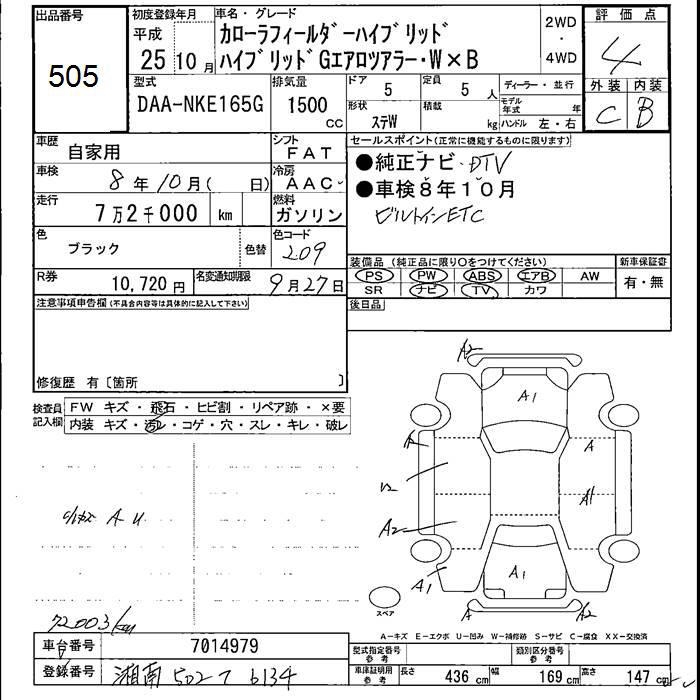 出品番号
505
初度登録年月
平成
25 10 月
車名・グレード
カローラフィールダーハイブリッド
ハイブリッドGエアロツアラー・W×B
2WD
・
4WD
評価点
4
外装 内装
C B
型式
DAA-NKE165G
排気量
1500
CC
ドア
5
定員
5 人
形状
ステW
積載
kg
ディーラー・並行
モデル年式 年
ハンドル 左・右
車歴
自家用
シフト
FAT
車検
8年10月( 日)
冷房
AAC
走行
7万2千000 km
燃料
ガソリン
色
ブラック
色替
色コード
209
R券
10,720 円
名変通知期限
9月27日
セールスポイント(正常に機能するものに限ります)
●純正ナビ・DTV
●車検8年10月
ビルトインETC
装備品 (純正品に限り○をつけてください)
PS PW ABS エアB AW
SR ナビ TV カワ
新車保証書
有・無
後日品
注意事項申告欄(不具合内容等は具体的に記入して下さい)
修復歴 有〔箇所 〕
検査員記入欄
FW キズ・飛石・ヒビ割・リペア跡・×要
内装 キズ・汚レ・コゲ・穴・スレ・キレ・破レ
A U
72003km
A2
A1
A
A
A1
A2
A1
A1
A
A2
スペア
A-キズ E-エクボ U-凹み W-補修跡 S-サビ C-腐食 XX-交換済
車台番号
7014979
登録番号
湘南 502 フ 6134
型式指定番号
参考
類別区分番号
参考
車庫証明用
参考
長さ 436 cm 幅 169 cm 高さ 147 cm